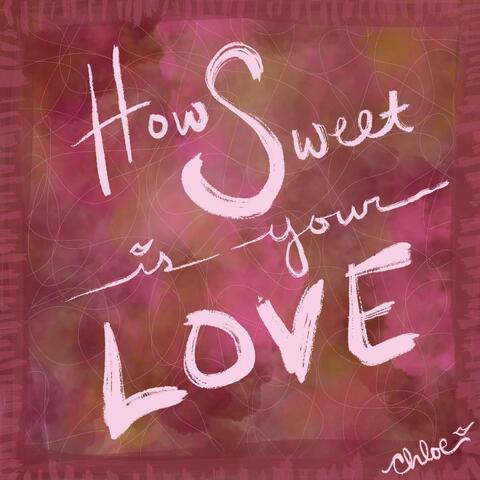 How Sweet
is your
LOVE
chloe